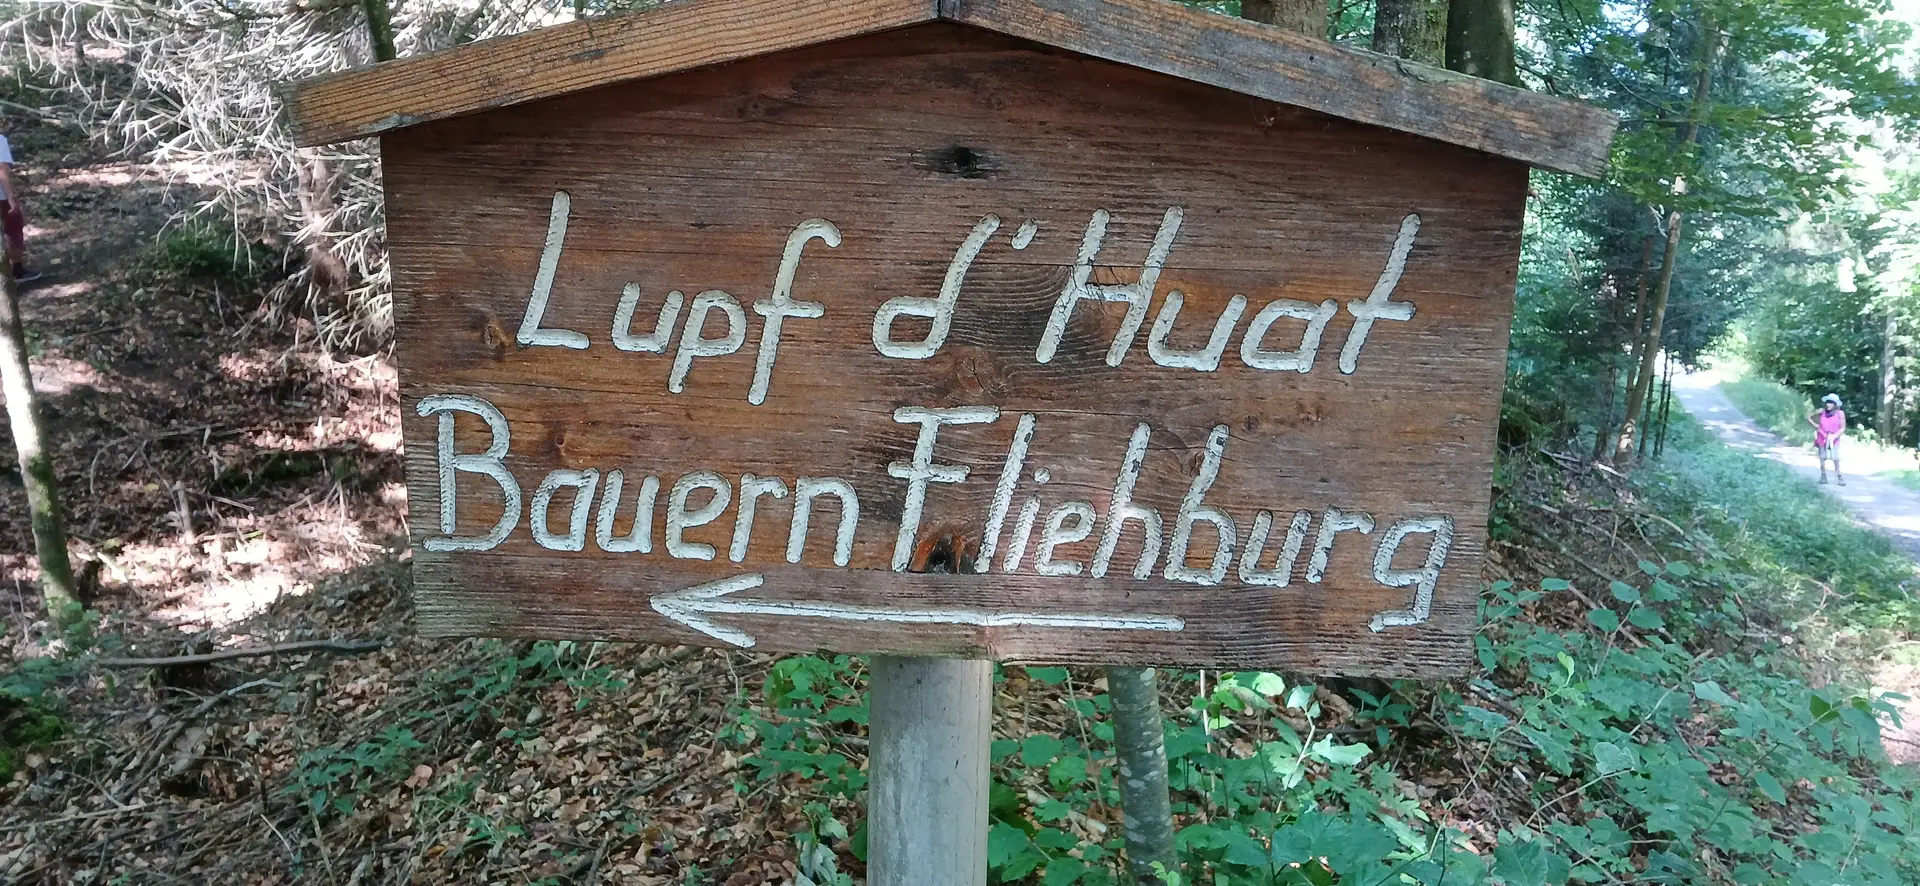 Lupf d'Huat
Bauern Fliehburg